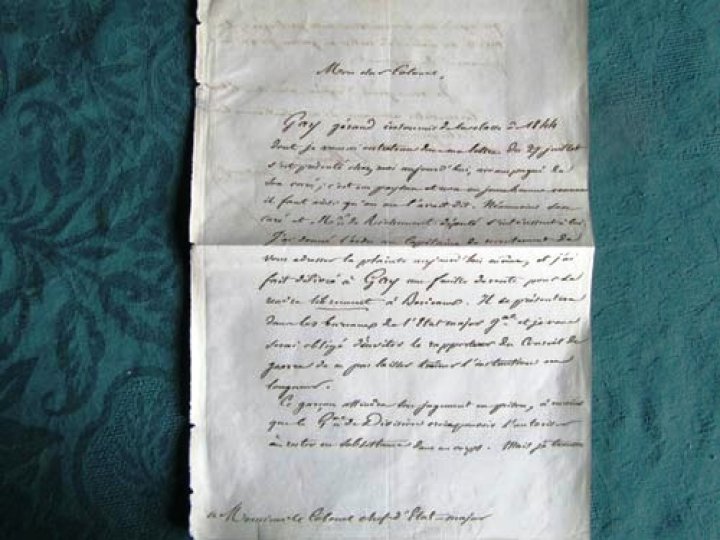 Mon cher Colonel,
Gay gérand insoumis de la classe de 1844
dont je vous ai entretenu dans ma lettre du 29 juillet
s'est présenté chez moi aujourd'hui, accompagné de
son curé; c'est un paysan et non un jeune homme comme
il faut ainsi qu'on me l'avait dit. Néanmoins son
curé et Mr. de Richemont député s'intéressent à lui,
J'ai donné l'ordre Capitaine de recrutement de
vous adresser la plainte aujourd'hui même, et j'ai
fait délivré à Gay une feuille de route pour se
rendre librement à Bordeaux. Il se présentera
dans les bureaux de l'Etat major Gal. et je vous
serai obligé d'inviter le rapporteur du Conseil de
guerre de ne pas laisser traîner l'instruction en
longueur.
Ce garçon attendra son jugement en prison, à moins
que le Gal. de Division l'autoriser
à rester en subsistance dans un corps. Mais je
a Monsieur le Colonel chef d'Etat-major